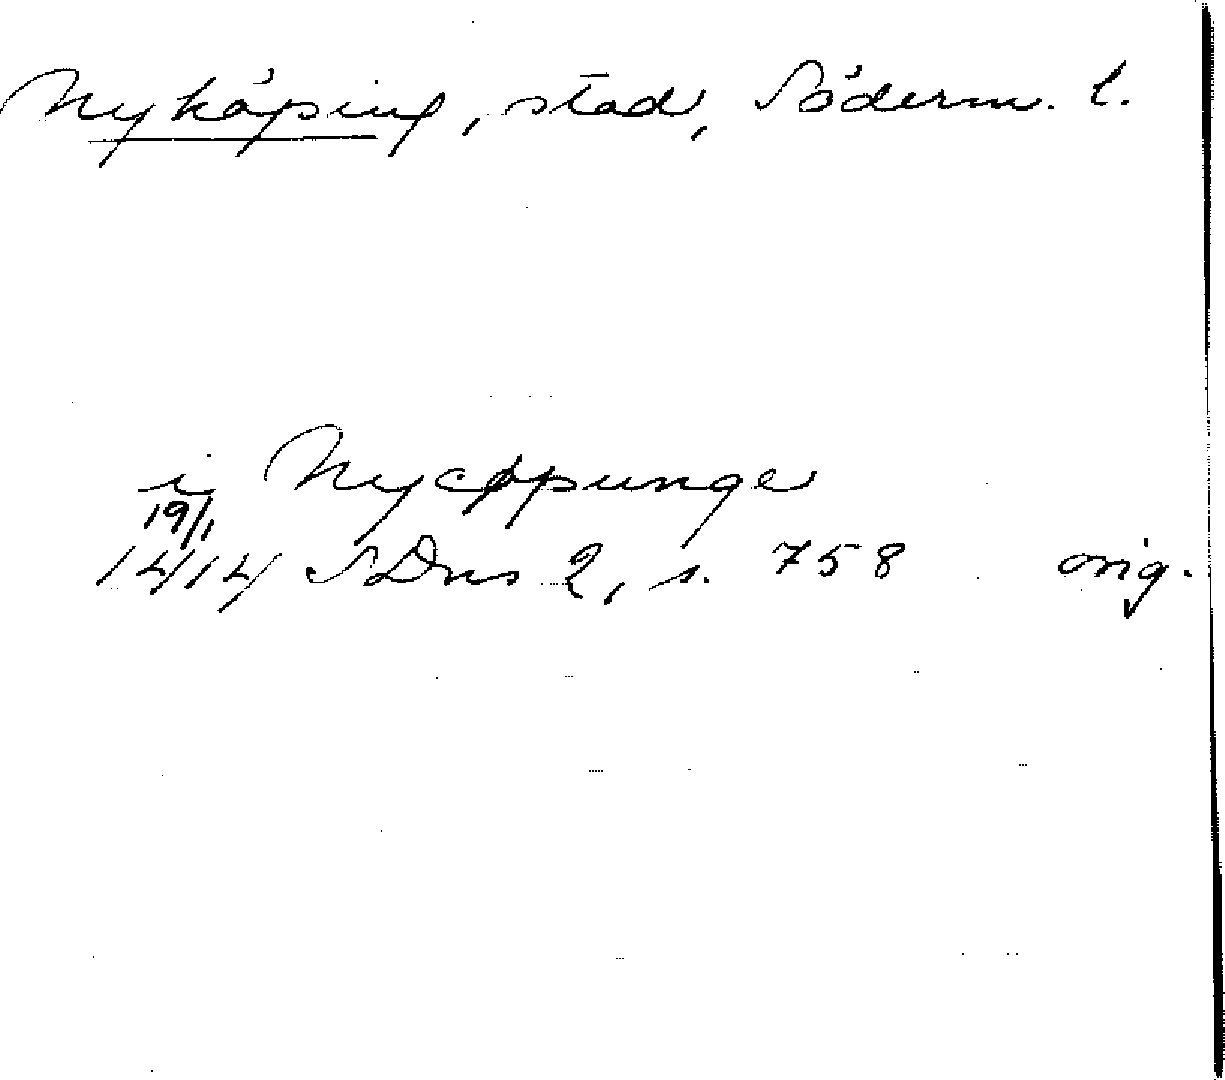 Nyköping, stad, Söderm. l.
i Nycøpunge
19/1
1414 SDns 2, s. 758 orig.